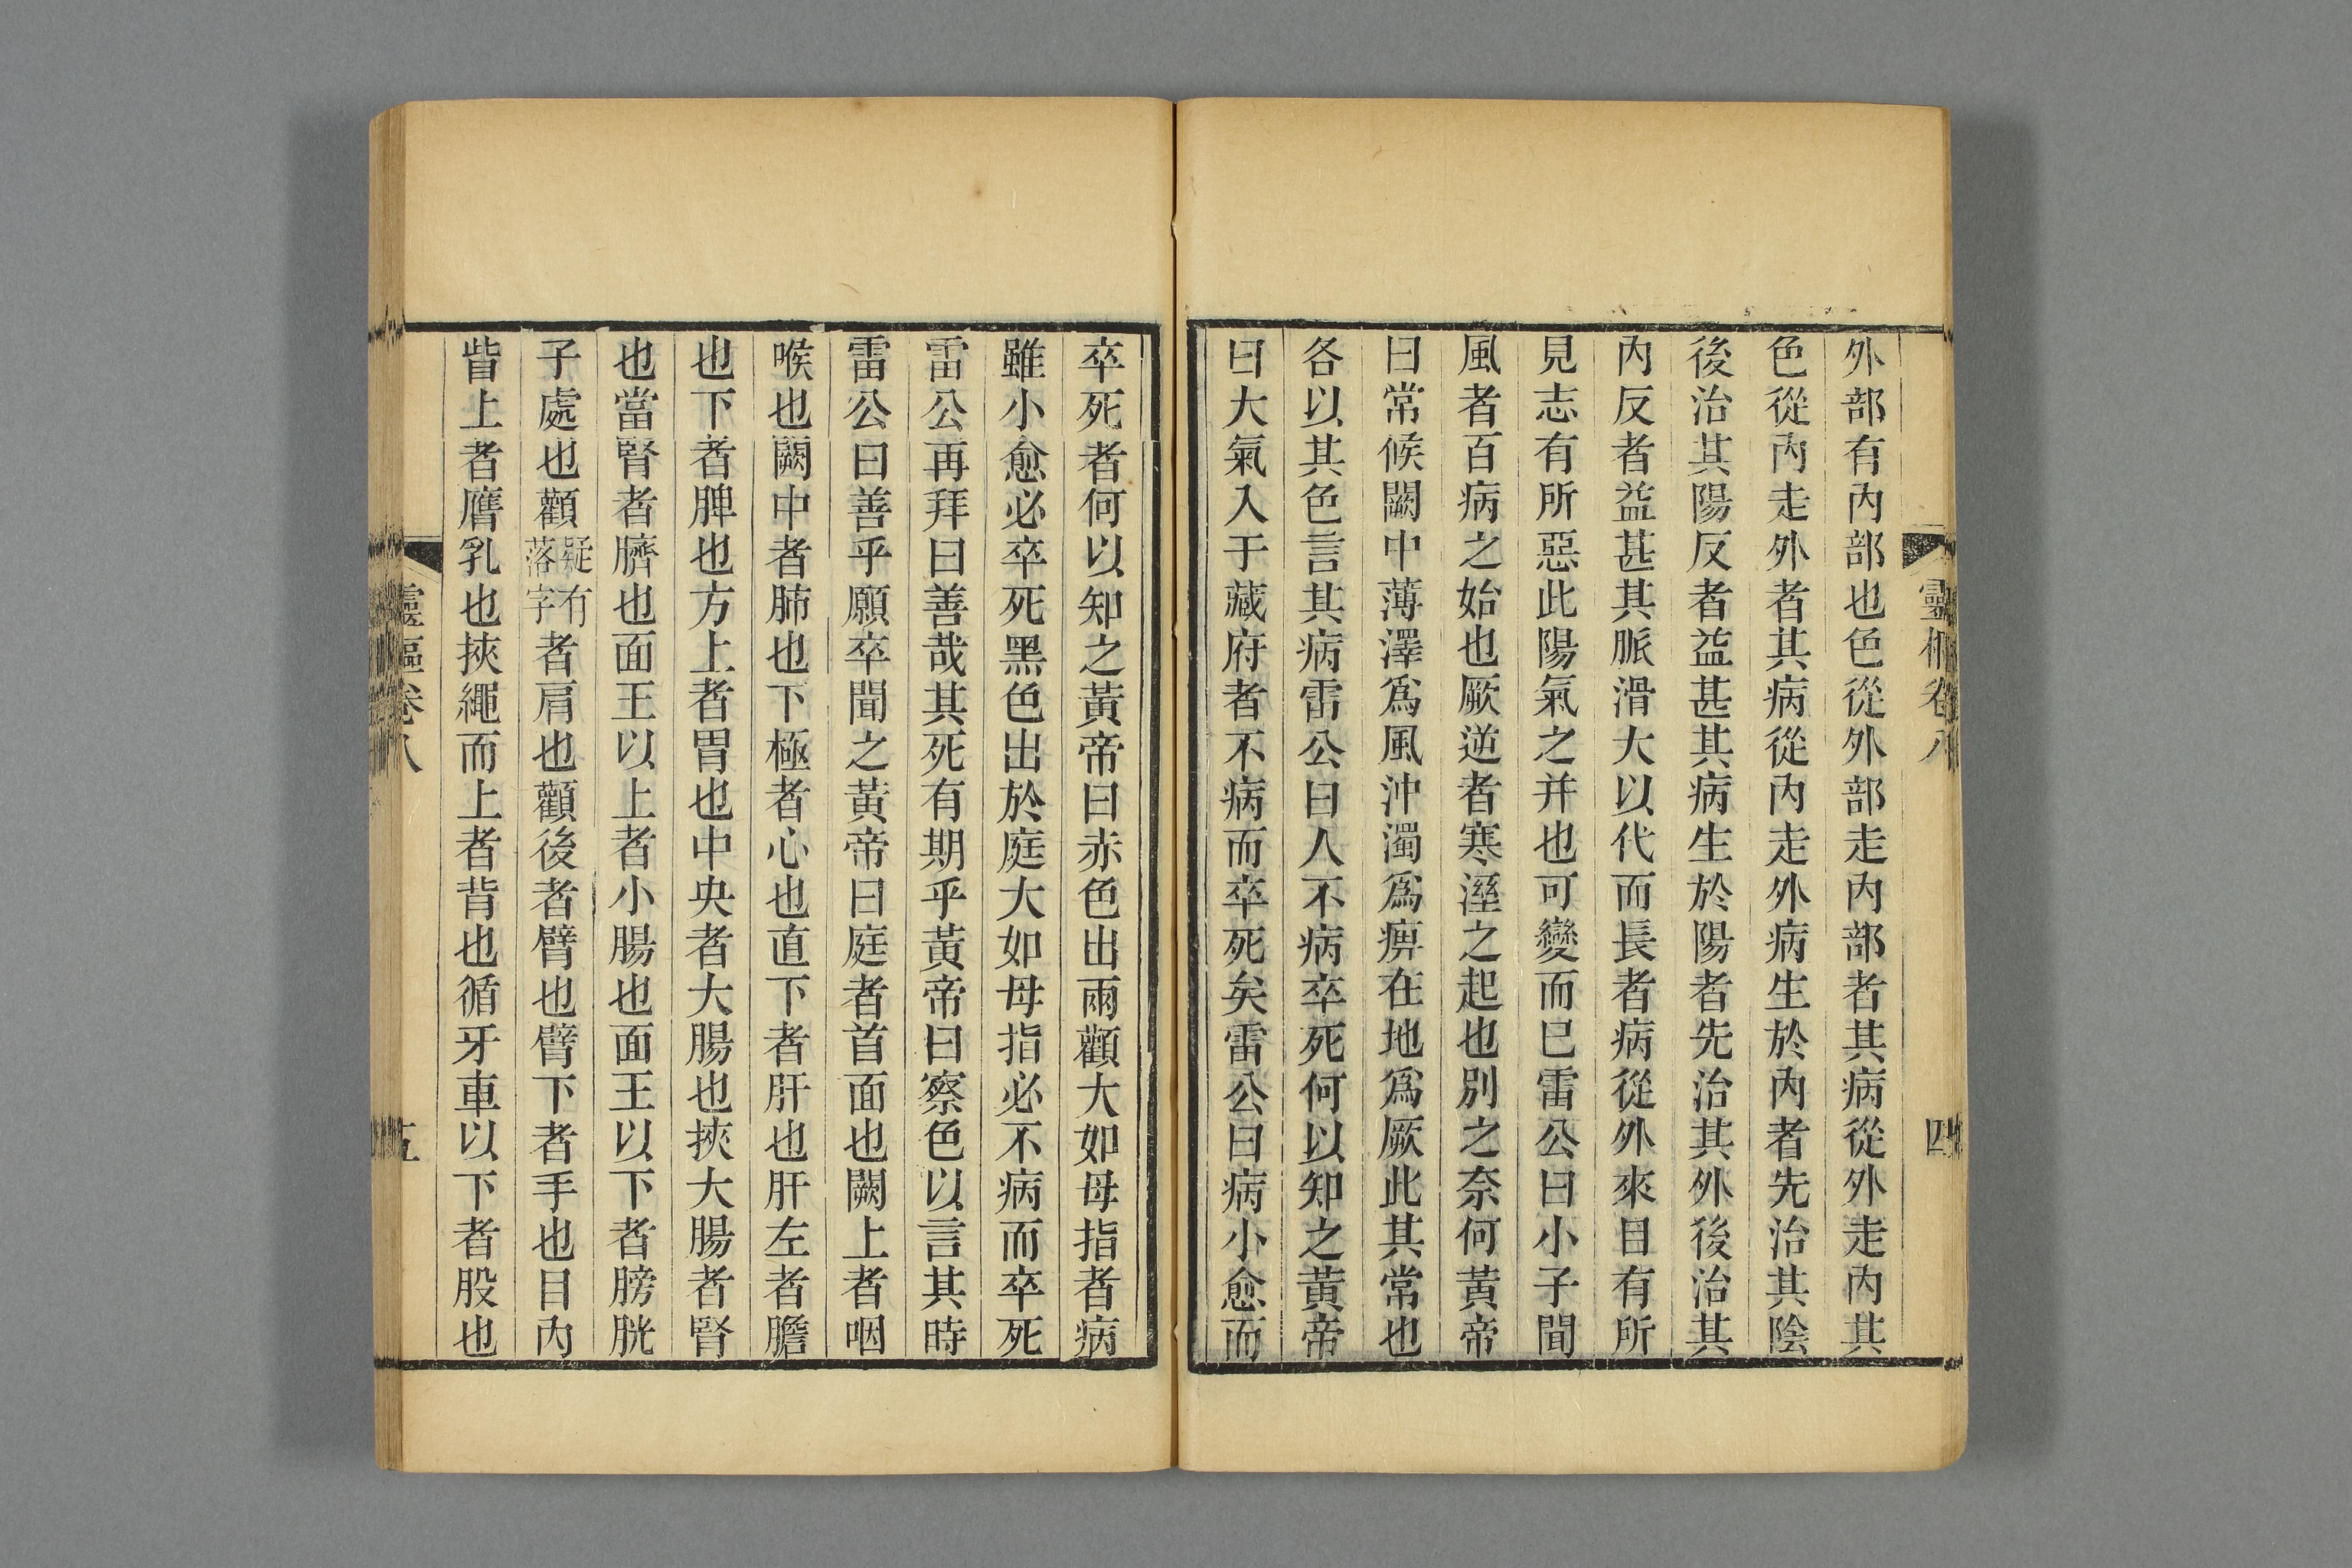 靈樞卷八 四
外部有內部也色從外部走內部者其病從外走內其
色從內走外者其病從內走外病生於內者先治其陰
後治其陽反者益甚其病生於陽者先治其外後治其
內反者益甚其脈滑大以代而長者病從外來目有所
見志有所惡此陽氣之并也可變而已雷公曰小子聞
風者百病之始也厥逆者寒溼之起也別之奈何黃帝
曰常候闕中薄澤爲風沖濁爲痹在地爲厥此其常也
各以其色言其病雷公曰人不病卒死何以知之黃帝
曰大氣入于藏府者不病而卒死矣雷公曰病小愈而
卒死者何以知之黃帝曰赤色出兩顴大如母指者病
雖小愈必卒死黑色出於庭大如母指必不病而卒死
雷公再拜曰善哉其死有期乎黃帝曰察色以言其時
雷公曰善乎願卒聞之黃帝曰庭者首面也闕上者咽
喉也闕中者肺也下極者心也直下者肝也肝左者膽
也下者脾也方上者胃也中央者大腸也挾大腸者腎
也當腎者臍也面王以上者小腸也面王以下者膀胱
子處也顴疑有落字者肩也顴後者臂也臂下者手也目內
眥上者膺乳也挾繩而上者背也循牙車以下者股也
靈樞卷八 五